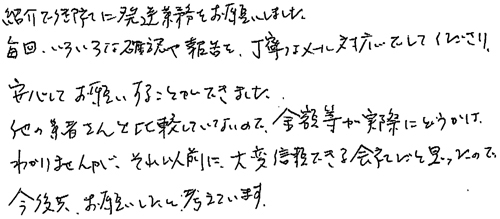 紹介で行政書士に発送業務をお願いしました。
毎回、いろいろな確認や報告を、丁寧なメール対応でしてくださり、
安心してお願いすることができました。
他の業者さんと比較していないので、金額等が実際にどうかは、
わかりませんが、それ以前に、大変信頼できる会社だと思ったので、
今後共、お願いしたいと考えています。